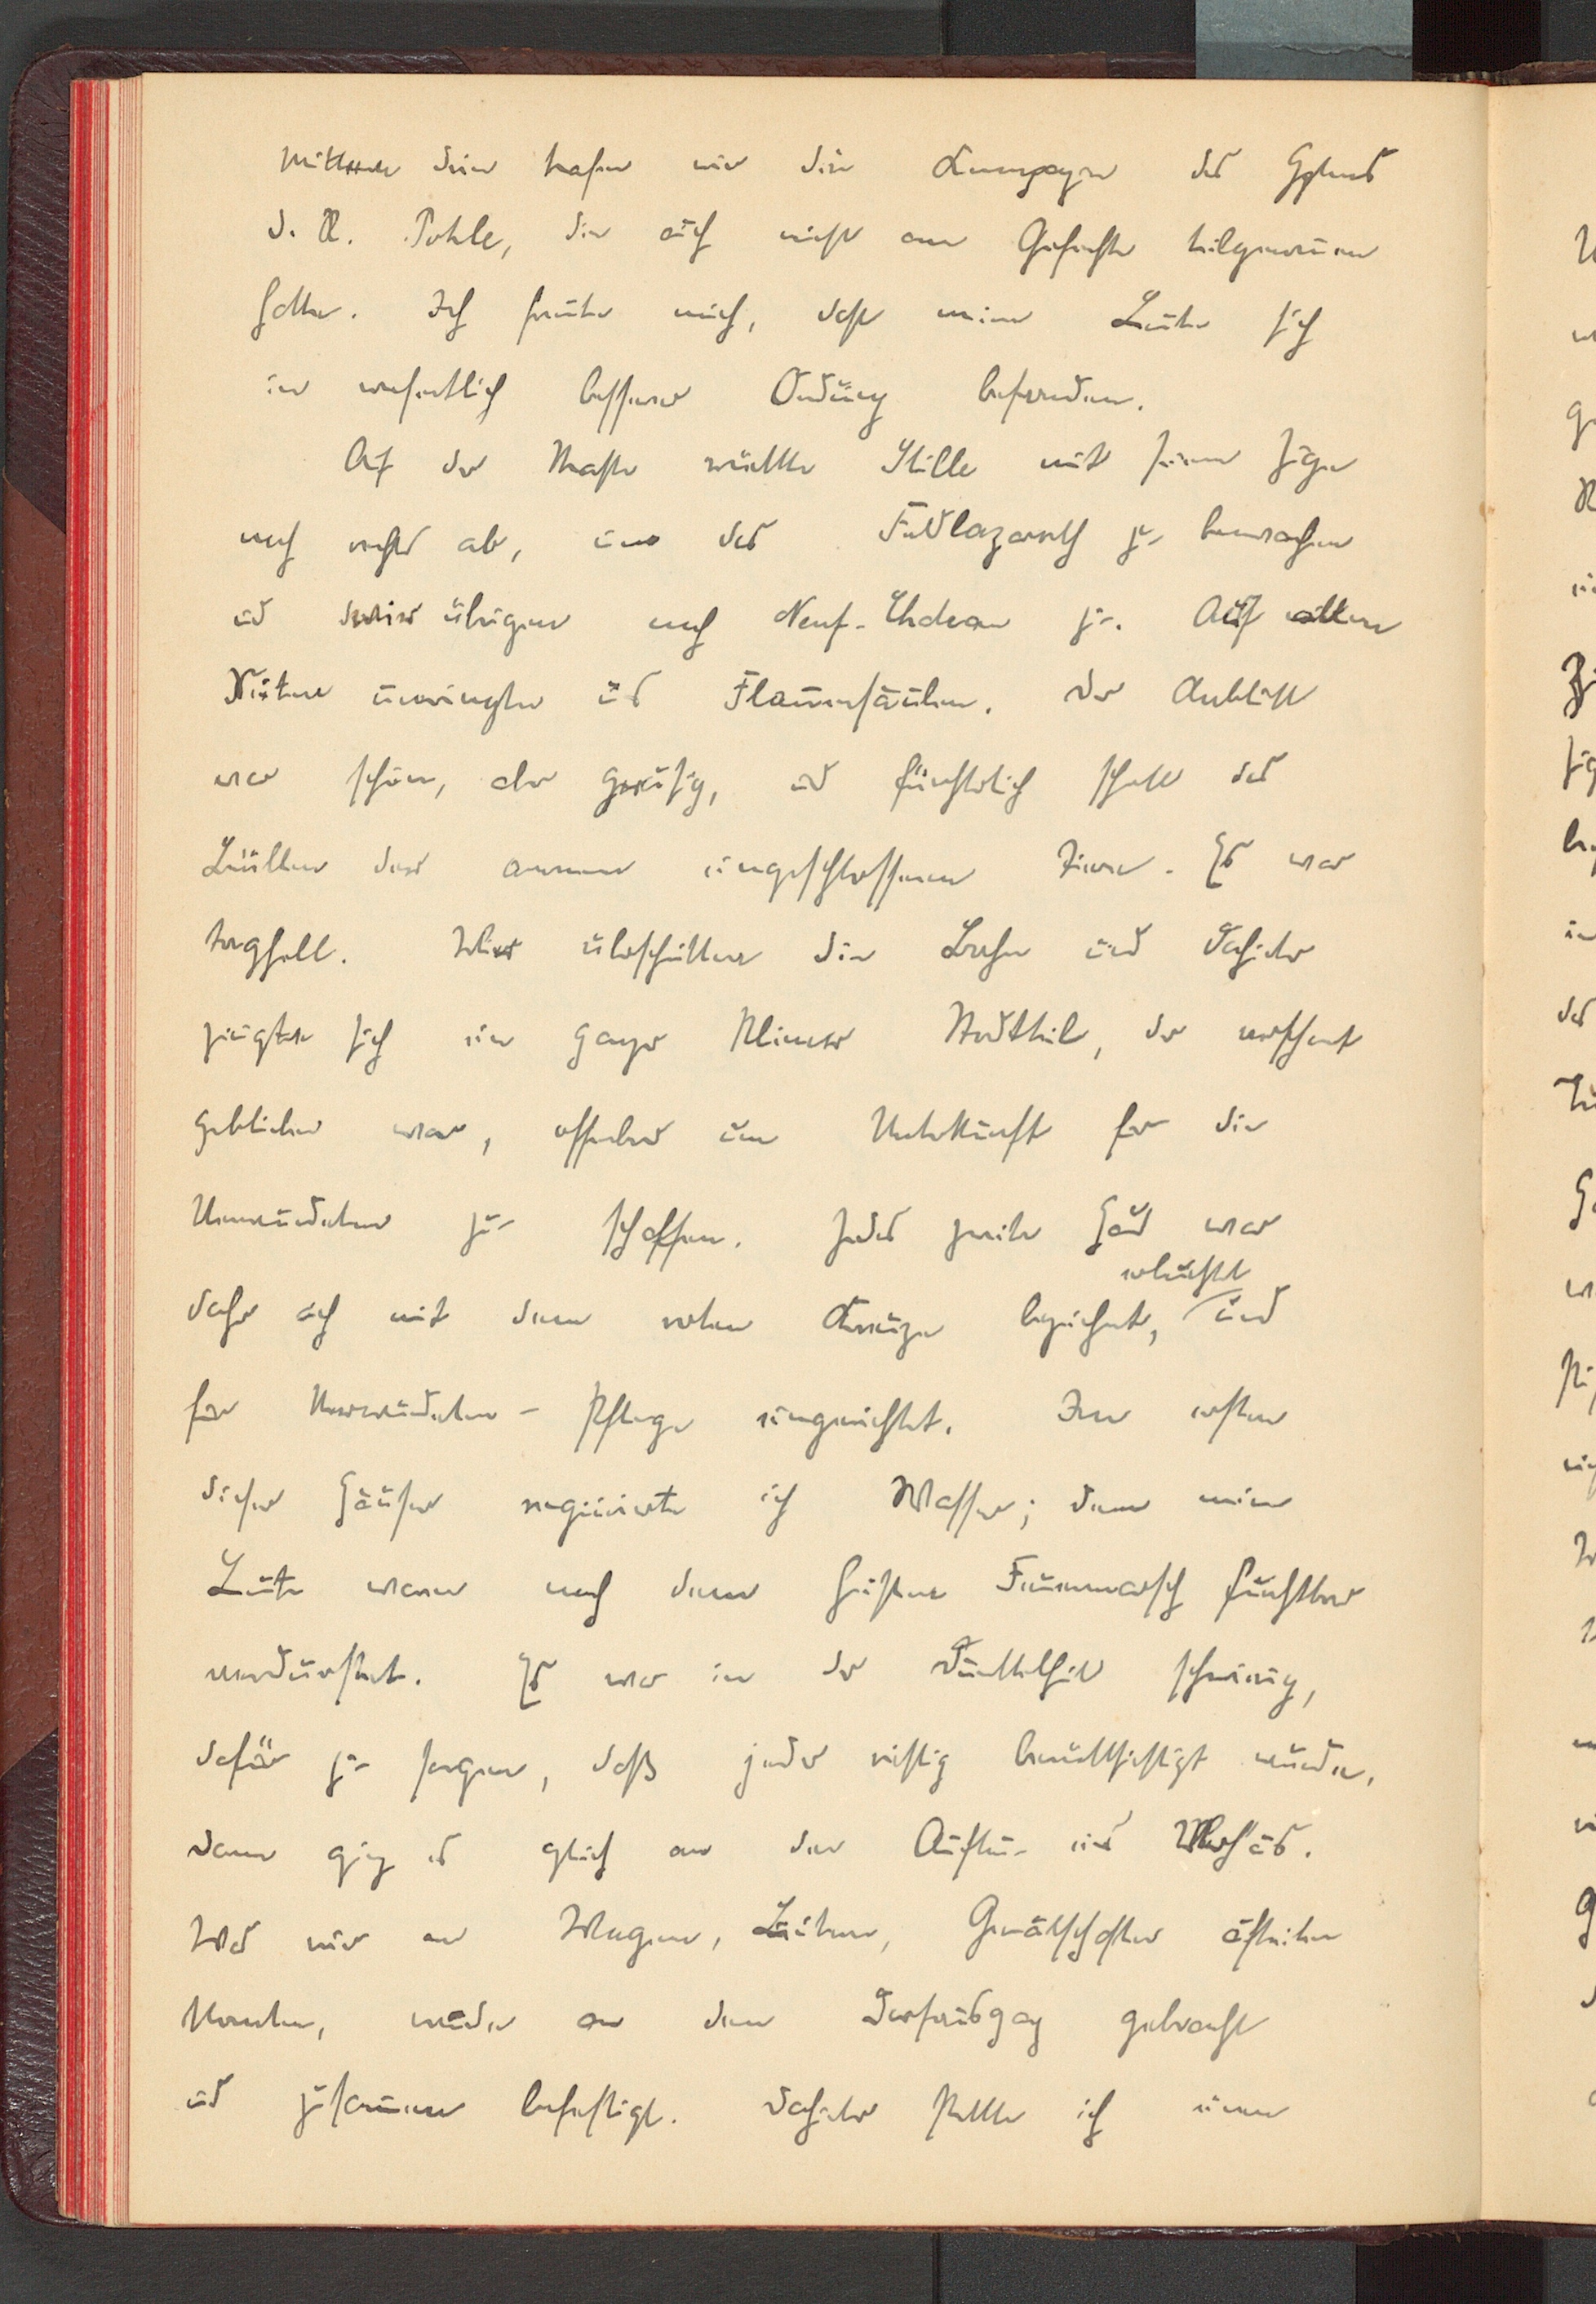 Mitten drin trafen wir die Kompagnie des Hptms
d. R. Pohle, die auch nicht am Gefechte teilgenommen
hatte. Ich freute mich, dass meine Leute sich
in wesentlich besserer Ordnung befanden.
Auf der Strasse rückte Stille mit seinem Zuge
nach rechts ab, um das Feldlazareth zu bewachen
und wir übrigen nach Neuf-Chateau zu. Auf allen
Seiten umringten uns Flammensäulen. Der Anblick
war schön, aber grausig, und fürchterlich scholl das
Brüllen der armen eingeschlossenen Tiere. Es war
taghell. Wir überschritten die Bahn und dahinter
zeigte sich ein ganz kleiner Stadtteil, der verschont
geblieben war, offenbar um Unterkunft für die
Verwundeten zu schaffen. Jedes zweite Haus war
erleuchtet
daher auch mit dem roten Kreuze bezeichnet, und
für Verwundeten-Pflege eingerichtet. Im ersten
dieser Häuser requirierte ich Wasser; denn meine
Leute waren nach dem heissen Feuermarsch furchtbar
verdurstet. Es war in der Dunkelheit schwierig,
dafür zu sorgen, daß jeder richtig berücksichtigt wurde.
Dann ging es gleich an den Aufbau eines Verhaus.
Was wir an Wagen, Leitern, Gerätschaften auftreiben
konnten, wurde an den Dorfausgang gebracht
und zusammen befestigt. Dahinter stellte ich einen